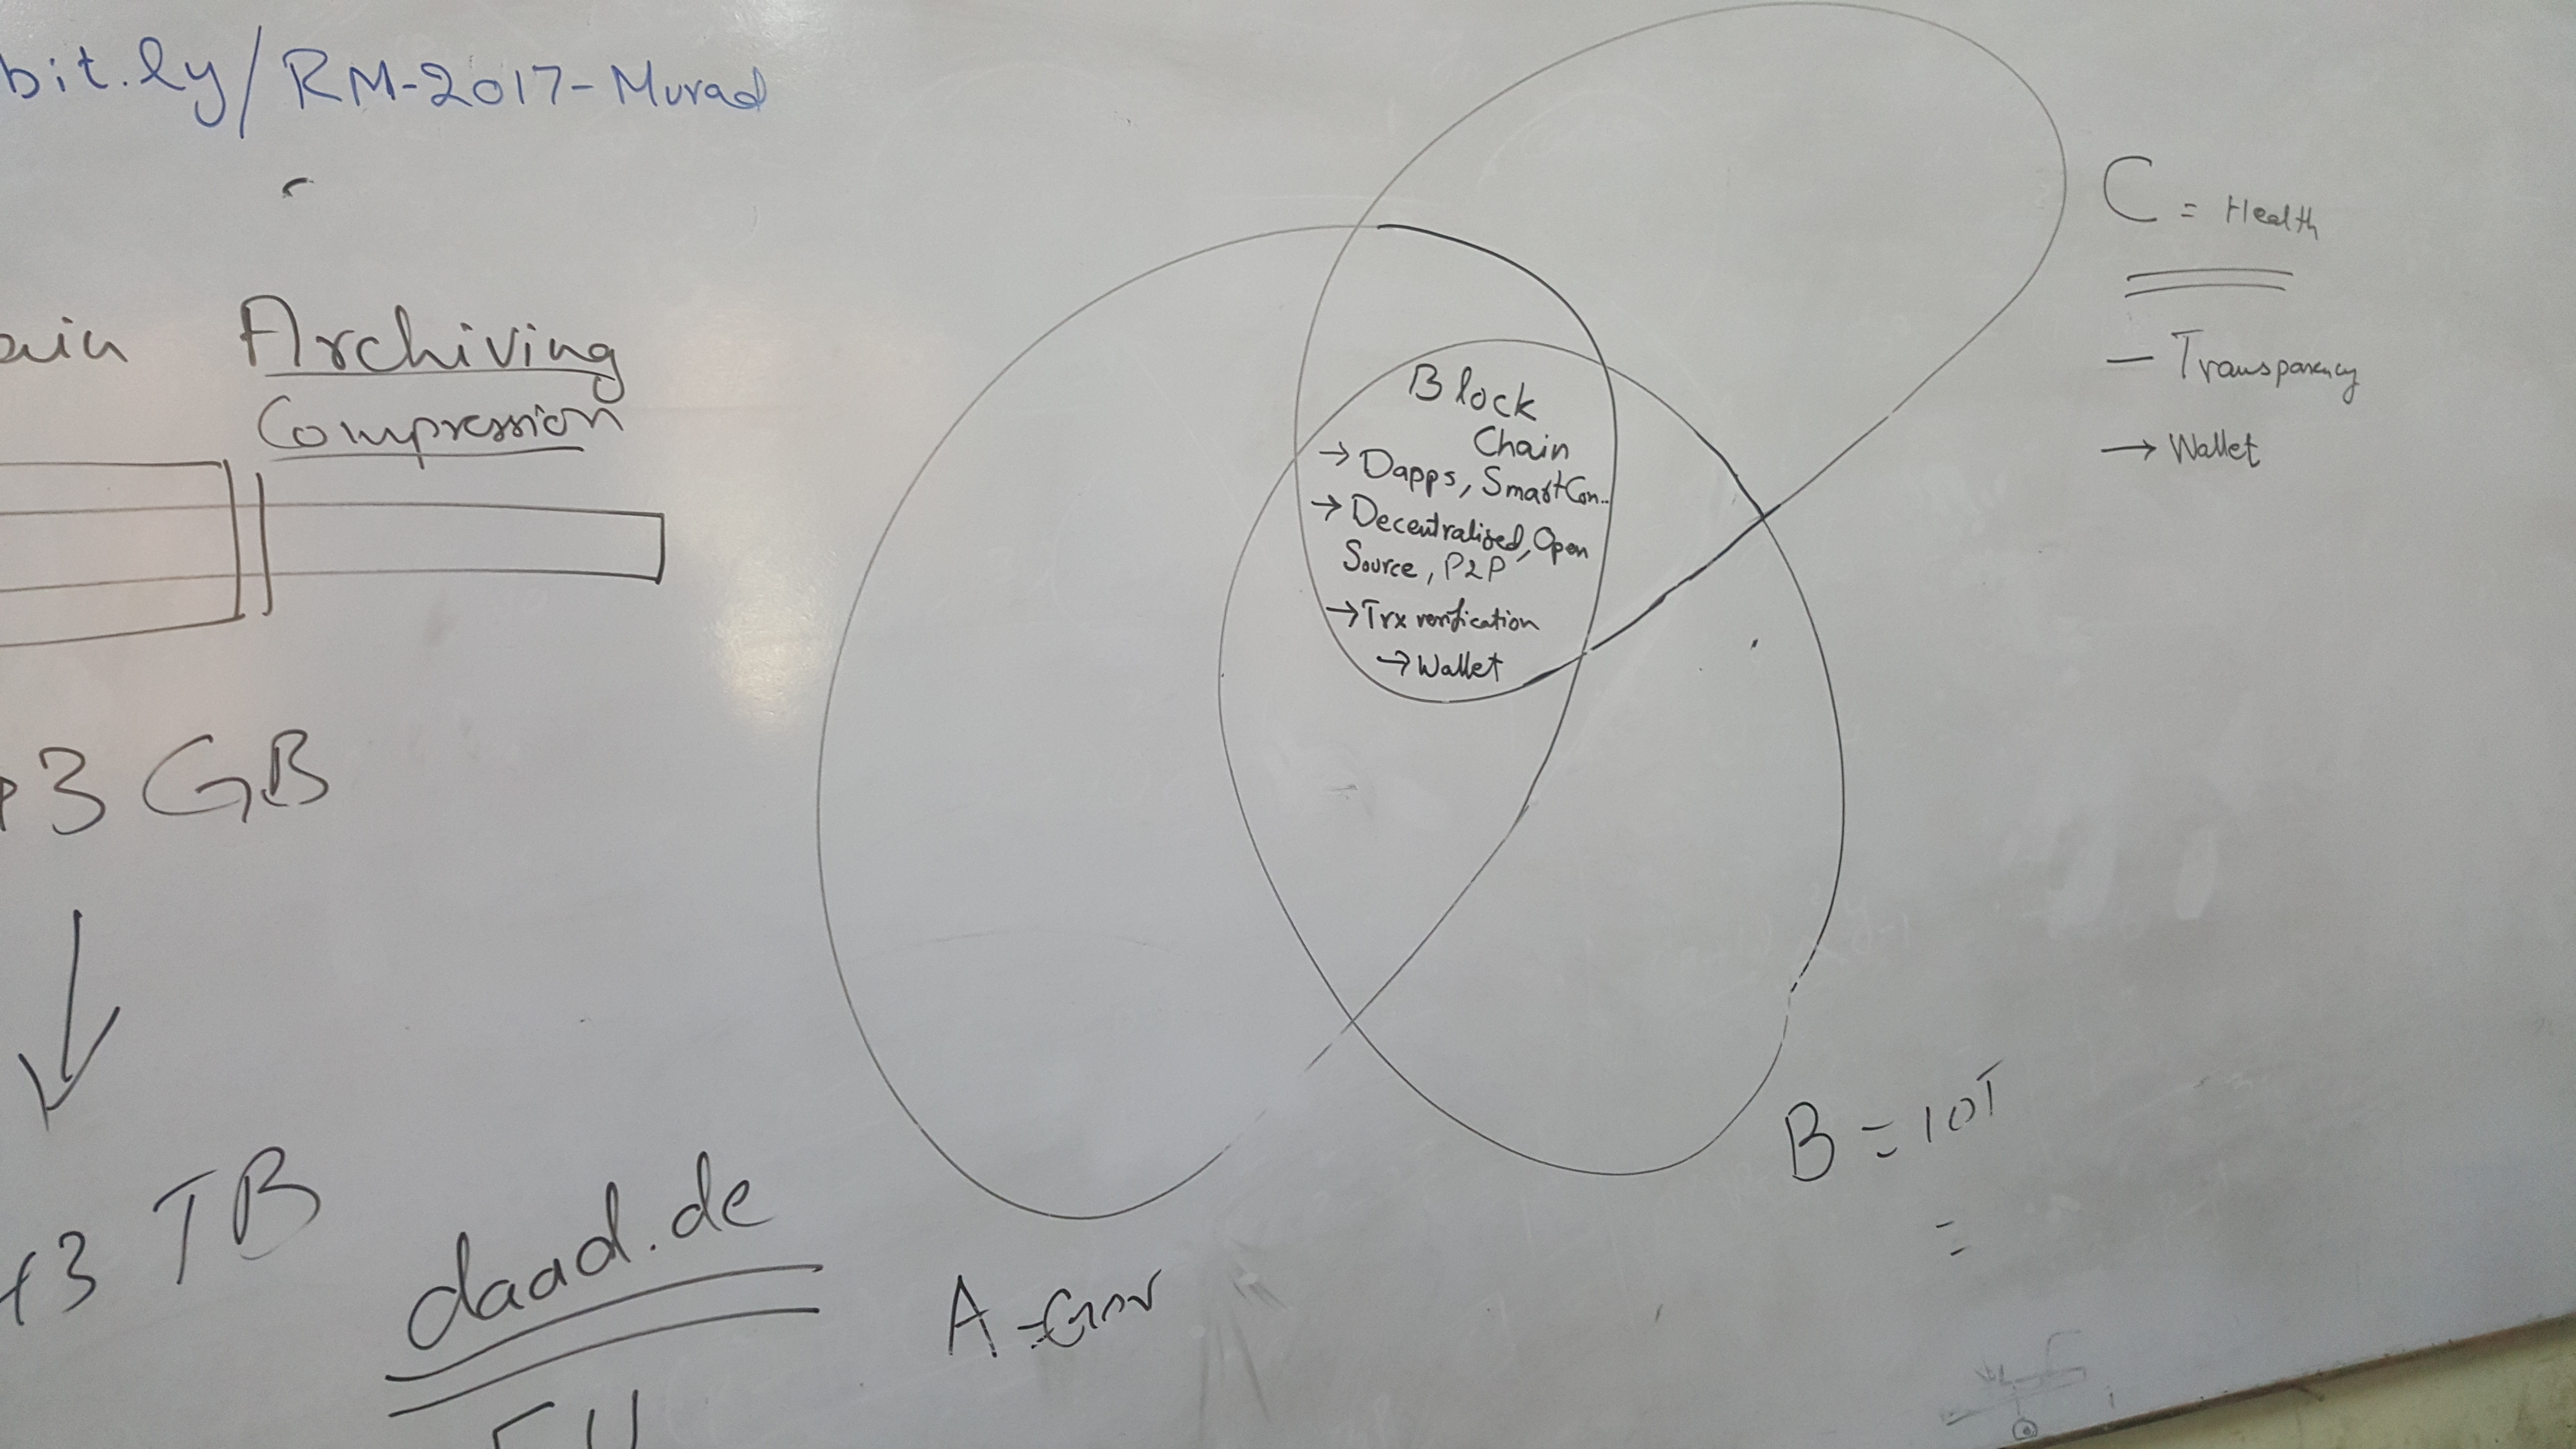 bit.ly/RM-2017-Murad
Archiving
Compression
3 GB
3 TB
daad.de
A = Gov
Block
Chain
→ Dapps, SmartCon..
→ Decentralized, Open
Source, P2P
→ Trx verification
→ Wallet
C = Health
— Transparency
→ Wallet
B = IOT
=